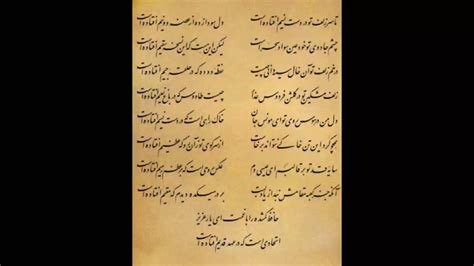 تا سر زلف تو در دست نسیم افتاده است دل سودازده از غصه دو نیم افتاده است
چشم جادوی تو خود عین سواد سحر است لیکن این است که این نسخه سقیم افتاده است
در خم زلف تو آن خال سیه دانی چیست نقطه دوده که در حلقه جیم افتاده است
زلف مشکین تو در گلشن فردوس عذار چیست طاووس که در باغ نعیم افتاده است
دل من در هوس روی تو ای مونس جان خاک راهی است که در دست نسیم افتاده است
همچو گرد این تن خاکی نتواند برخاست از سر کوی تو زان رو که عظیم افتاده است
سایه قد تو بر قالبم ای عیسی دم عکس روحی است که بر عظم رمیم افتاده است
آنکه جز کعبه مقامش نبد از یاد لبت بر در میکده دیدم که مقیم افتاده است
حافظ گمشده را با غمت ای یار عزیز
اتحادی است که در عهد قدیم افتاده است